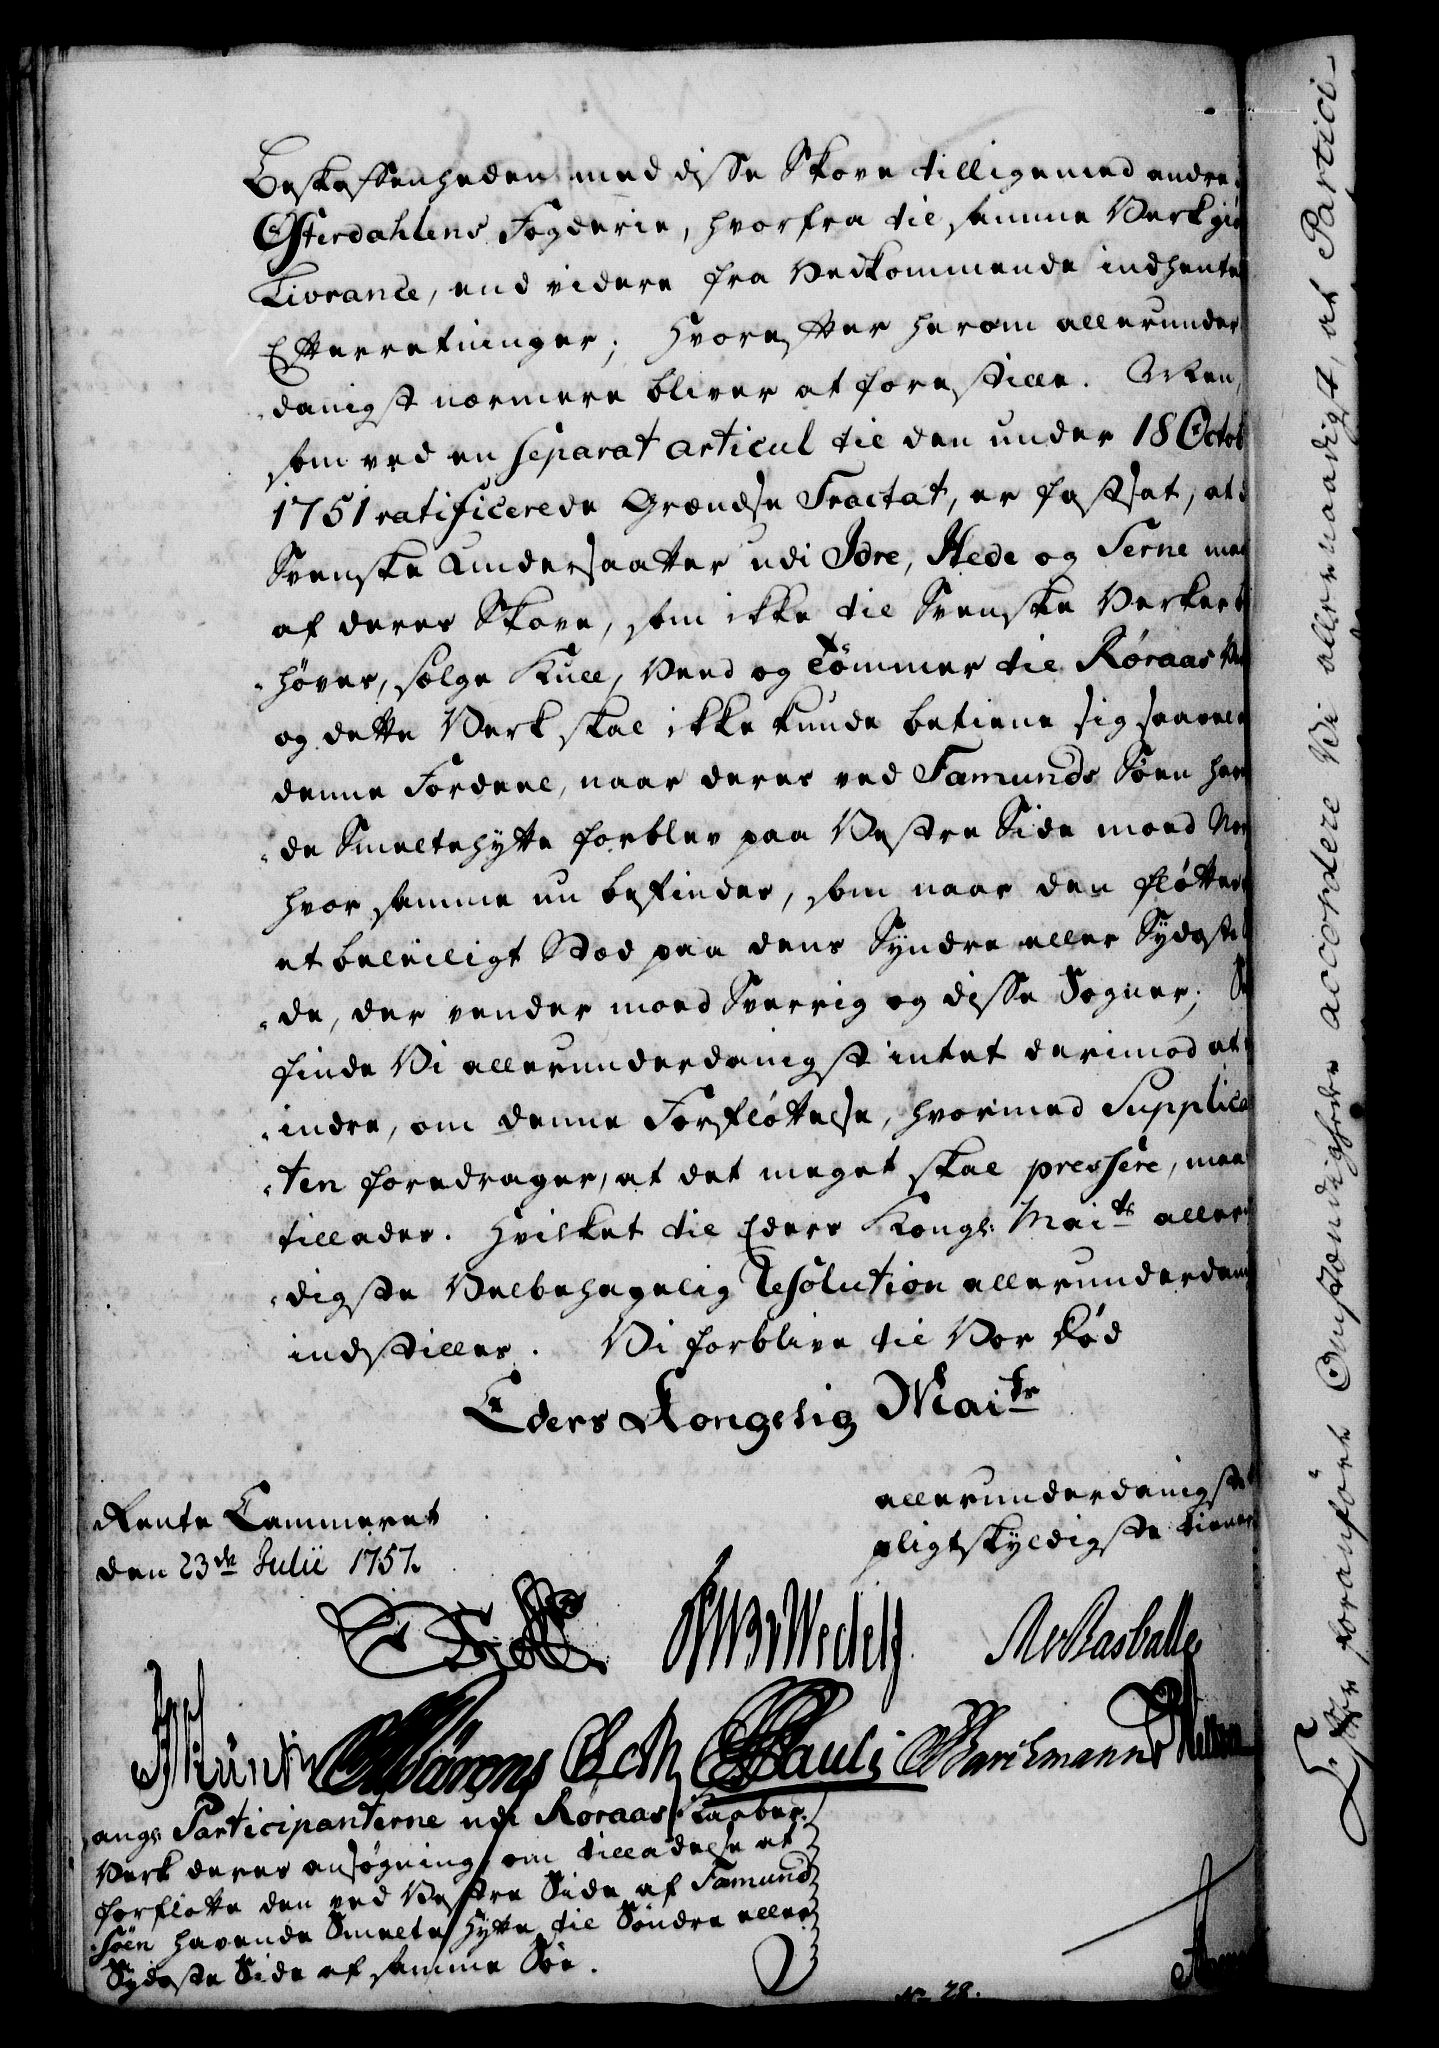 Beskaffenheden med disse Skove tilligemed andre i
Østerdahlens Fogderie, hvorfra til samme Verk giø
Livrance, end videre fra Vedkommende indhente
Efterretninger; Hvorefter herom allerunder-
danigst nærmere bliver at forestille. Men,
som ved en separat articul til den under 18 Octob
1751 ratificerede Grændse Tractat, er fastsat, at d
Svenske Undersaatter udi Idre, Hede og Serne maa
af deres Skove, som ikke til Svenske Verker b
høves, sælge Kull, Veed og Tømmer til Røraas
og dette Verk skal ikke kunde betiene sig saavel
denne Fordeel, naar deres ved Famunds Søen hav
de Smeltehytte forblev paa Vestre Side moed Nor
hvor samme nu befindes, som naar den fløttes
et beleiligt Stæd paa dens Syndre eller Sydostl
de, der vender moed Sverrig og disse Sogner; S
finde Vi allerunderdanigst intet derimod at
indre, om denne Forfløttelse, hvormed Supplica
ten foredrager, at det meget skal pressere, maa
tillades. Hvilket til Eders Kongl: Maits aller
digste Velbehagelig Resolution allerunderdan
indstilles. Vi forblive til Vor Død
Eders Kongelig Maits
allerunderdanigste
pligtskyldigste tiener
Rente Cammeret
den 23de Julii 1757.
Wedell
Rasballe
Pauli
angl: Participanterne udi Røraas Kaaber-
Verk deres ansøgning om tilladelse at
forfløtte den ved Vestre Side af Famund
Søen havende Smelte Hytte til Søndre eller
Sydoste Side af samme Søe.
No 28.
Efter foranførte Omstændigheder accordere Vi allernaadigst, at Partici-